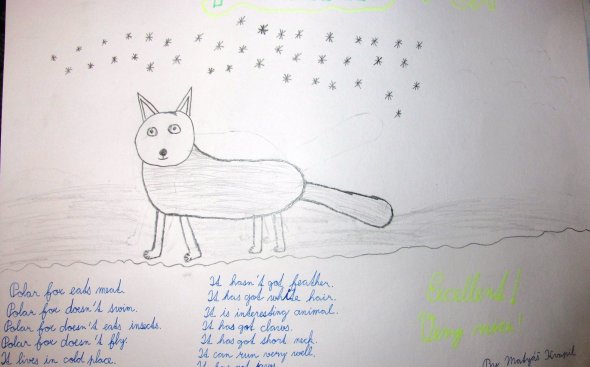 Polar fox eats meat.
Polar fox doesn't swim.
Polar fox doesn't eats insects.
Polar fox doesn't fly.
It lives in cold place.
It hasn't got feather.
It has got white hair.
It is interesting animal.
It has got claws.
It has got short neck.
It can run very well.
It has got
Excellent!
Very nice!
By Matyáš